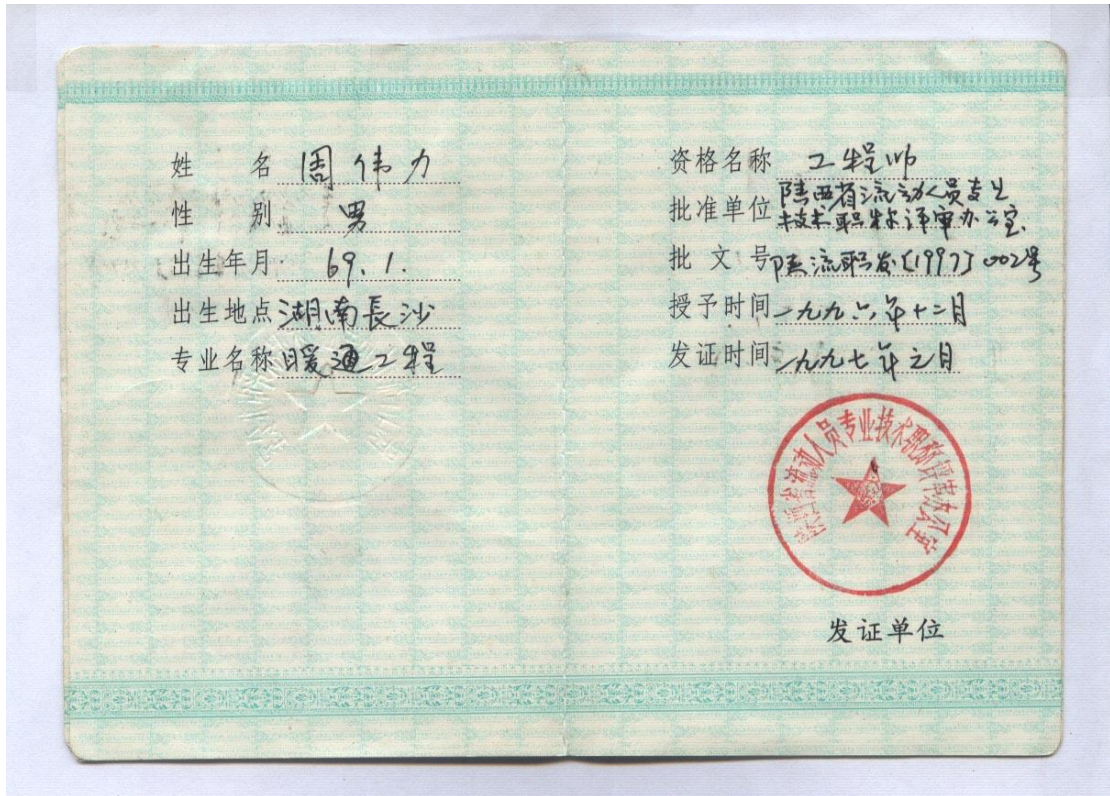 姓 名 周伟力
性 别 男
出生年月 69.1.
出生地点 湖南長沙
专业名称 暖通工程
资格名称 工程师
批准单位 陕西省流动人员专业
技术职称评审办公室
批文号 陕流职发[1997]002号
授予时间 一九九六年十二月
发证时间 一九九七年元月
陕西省流动人员专业技术职称评审办公室
发证单位